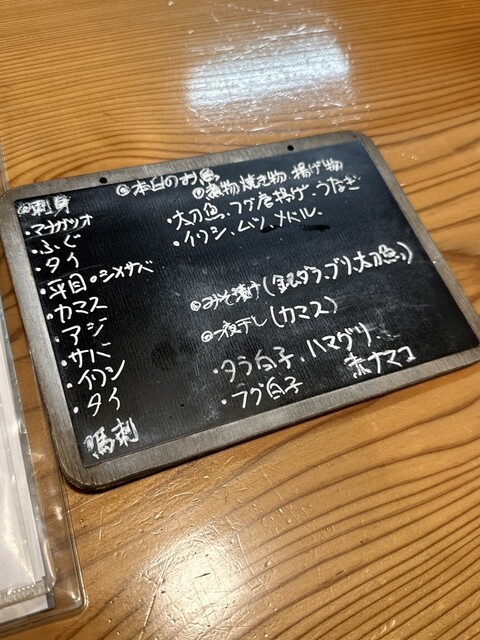 ◎本日のお魚
◎刺身
・マナガツオ
・ふぐ
・タイ
・平目 ○シメサバ
・カマス
・アジ
・サバ
・イワシ
・タイ
馬刺
◎煮物 焼き物 揚げ物
・太刀魚、フグ唐揚げ、うなぎ
・イワシ、ムツ、メバル
◎みそ漬け(銀ダラ、ブリ、太刀魚)
◎一夜干し(カマス)
・タラ白子、ハマグリ、
・フグ白子 赤ナマコ